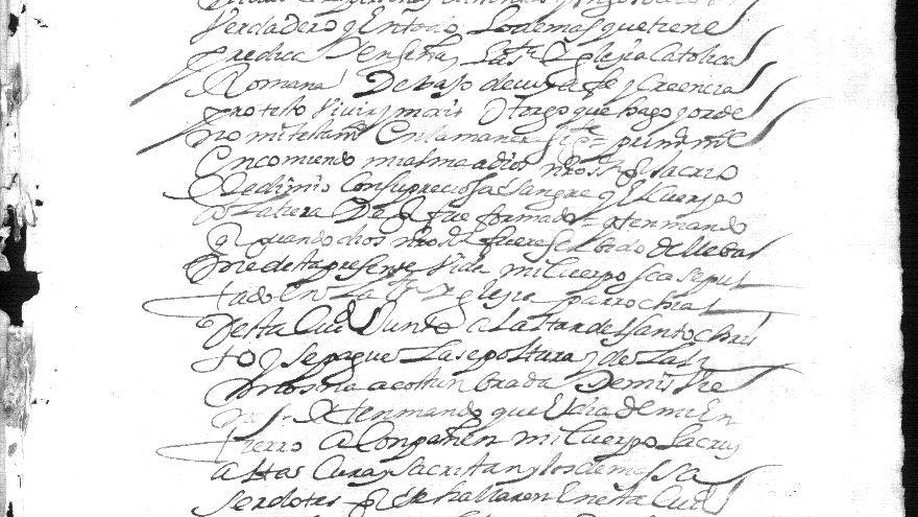 Verdadero y En todo Lo demas que tiene
predica y Enseña La sta Yglesia Catolica
Romana Debajo de cuya fe y Creencia
protesto Vivir y morir Otorgo que hago y orde
no mi testamto En la manera sigte primeramte
Encomiendo mi alma a dios nro sr q la crio
Redimio Con su preciosa sangre y El cuerpo
a La tierra De q fue formado = yten mando
q quando dios nro sr fuere serbido de lleba
rme de esta presente Vida mi Cuerpo sea sepul
tado En La Yglesia parrochial
Desta Ciud Junto a La altar del santo chris
to y se pague La sepoltura y de La
limosna acostunbrada De mis bie
nes = Yten mando que El dia de mi En
tierro aConpañen mi Cuerpo La cruz
alta Cura y sacristan y los demas sa
serdotes q se hallaren En esta Ciud